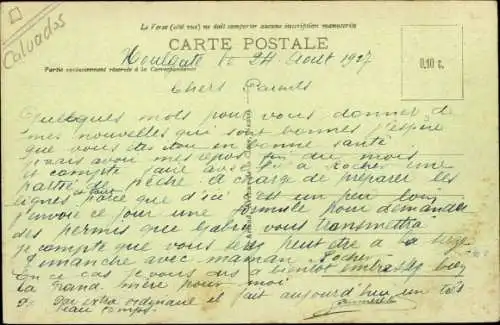 Calvados
Le Verso (côté vue) ne doit comporter aucune inscription manuscrite
CARTE POSTALE
0.10 c.
Houlgate le 24 Août 1927
Partie exclusivement réservée à la Correspondance
Chers Parents
Quelques mots pour vous donner de
mes nouvelles qui sont bonnes j'espère
que vous êtes tous en bonne santé
j'avais avoir mes repos fin du mois
et compte faire avec Rocher une
partie de pêche à charge de préparer les
lignes parce que d'ici c'est un peu loin
j'envoie ce jour une formule pour demander
des permis que vous transmettra
je compte que vous serez peut être à la
Dimanche avec maman Rocher
En ce cas je vous dis à bientôt embrassez bien
la Grand mère pour moi
Par extra ordinaire il fait aujourd'hui un très
beau temps.